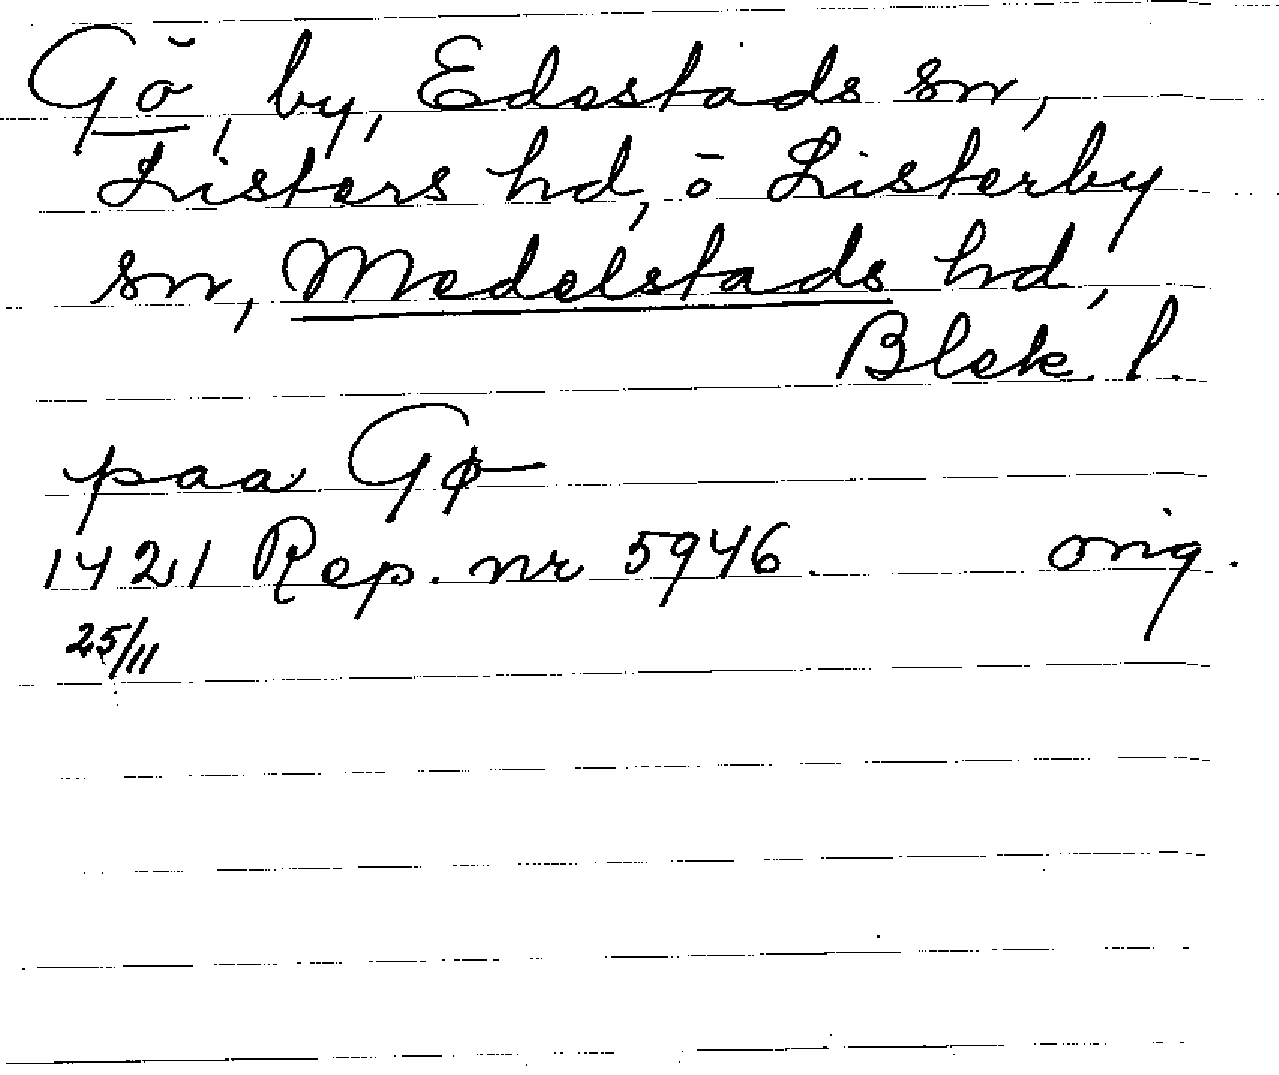 Gö, by, Edestads sn,
Listers hd, o Listerby
sn, Medelstads hd,
Blek. l.
paa Gø
1421 Rep. nr 5946. orig.
25/11